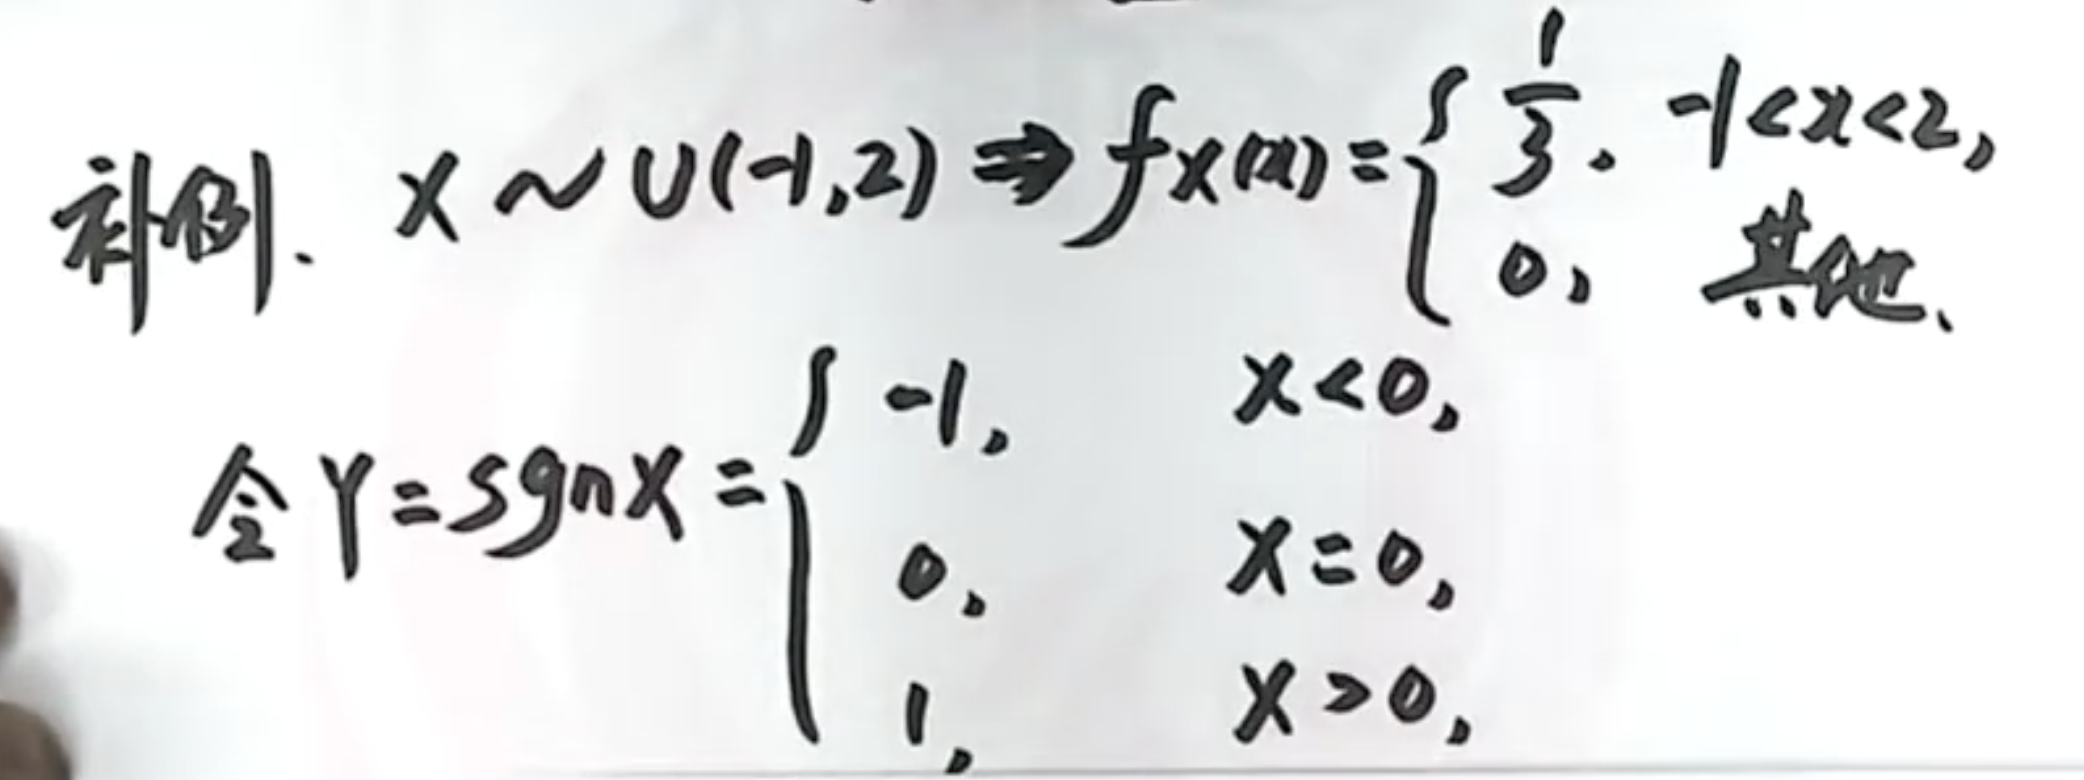 补例. X ~ U(-1,2) ⇒ f_X(x) = { 1/3, -1<x<2,
0, 其他.
令 Y = sgnX = { -1, X<0,
0, X=0,
1, X>0,